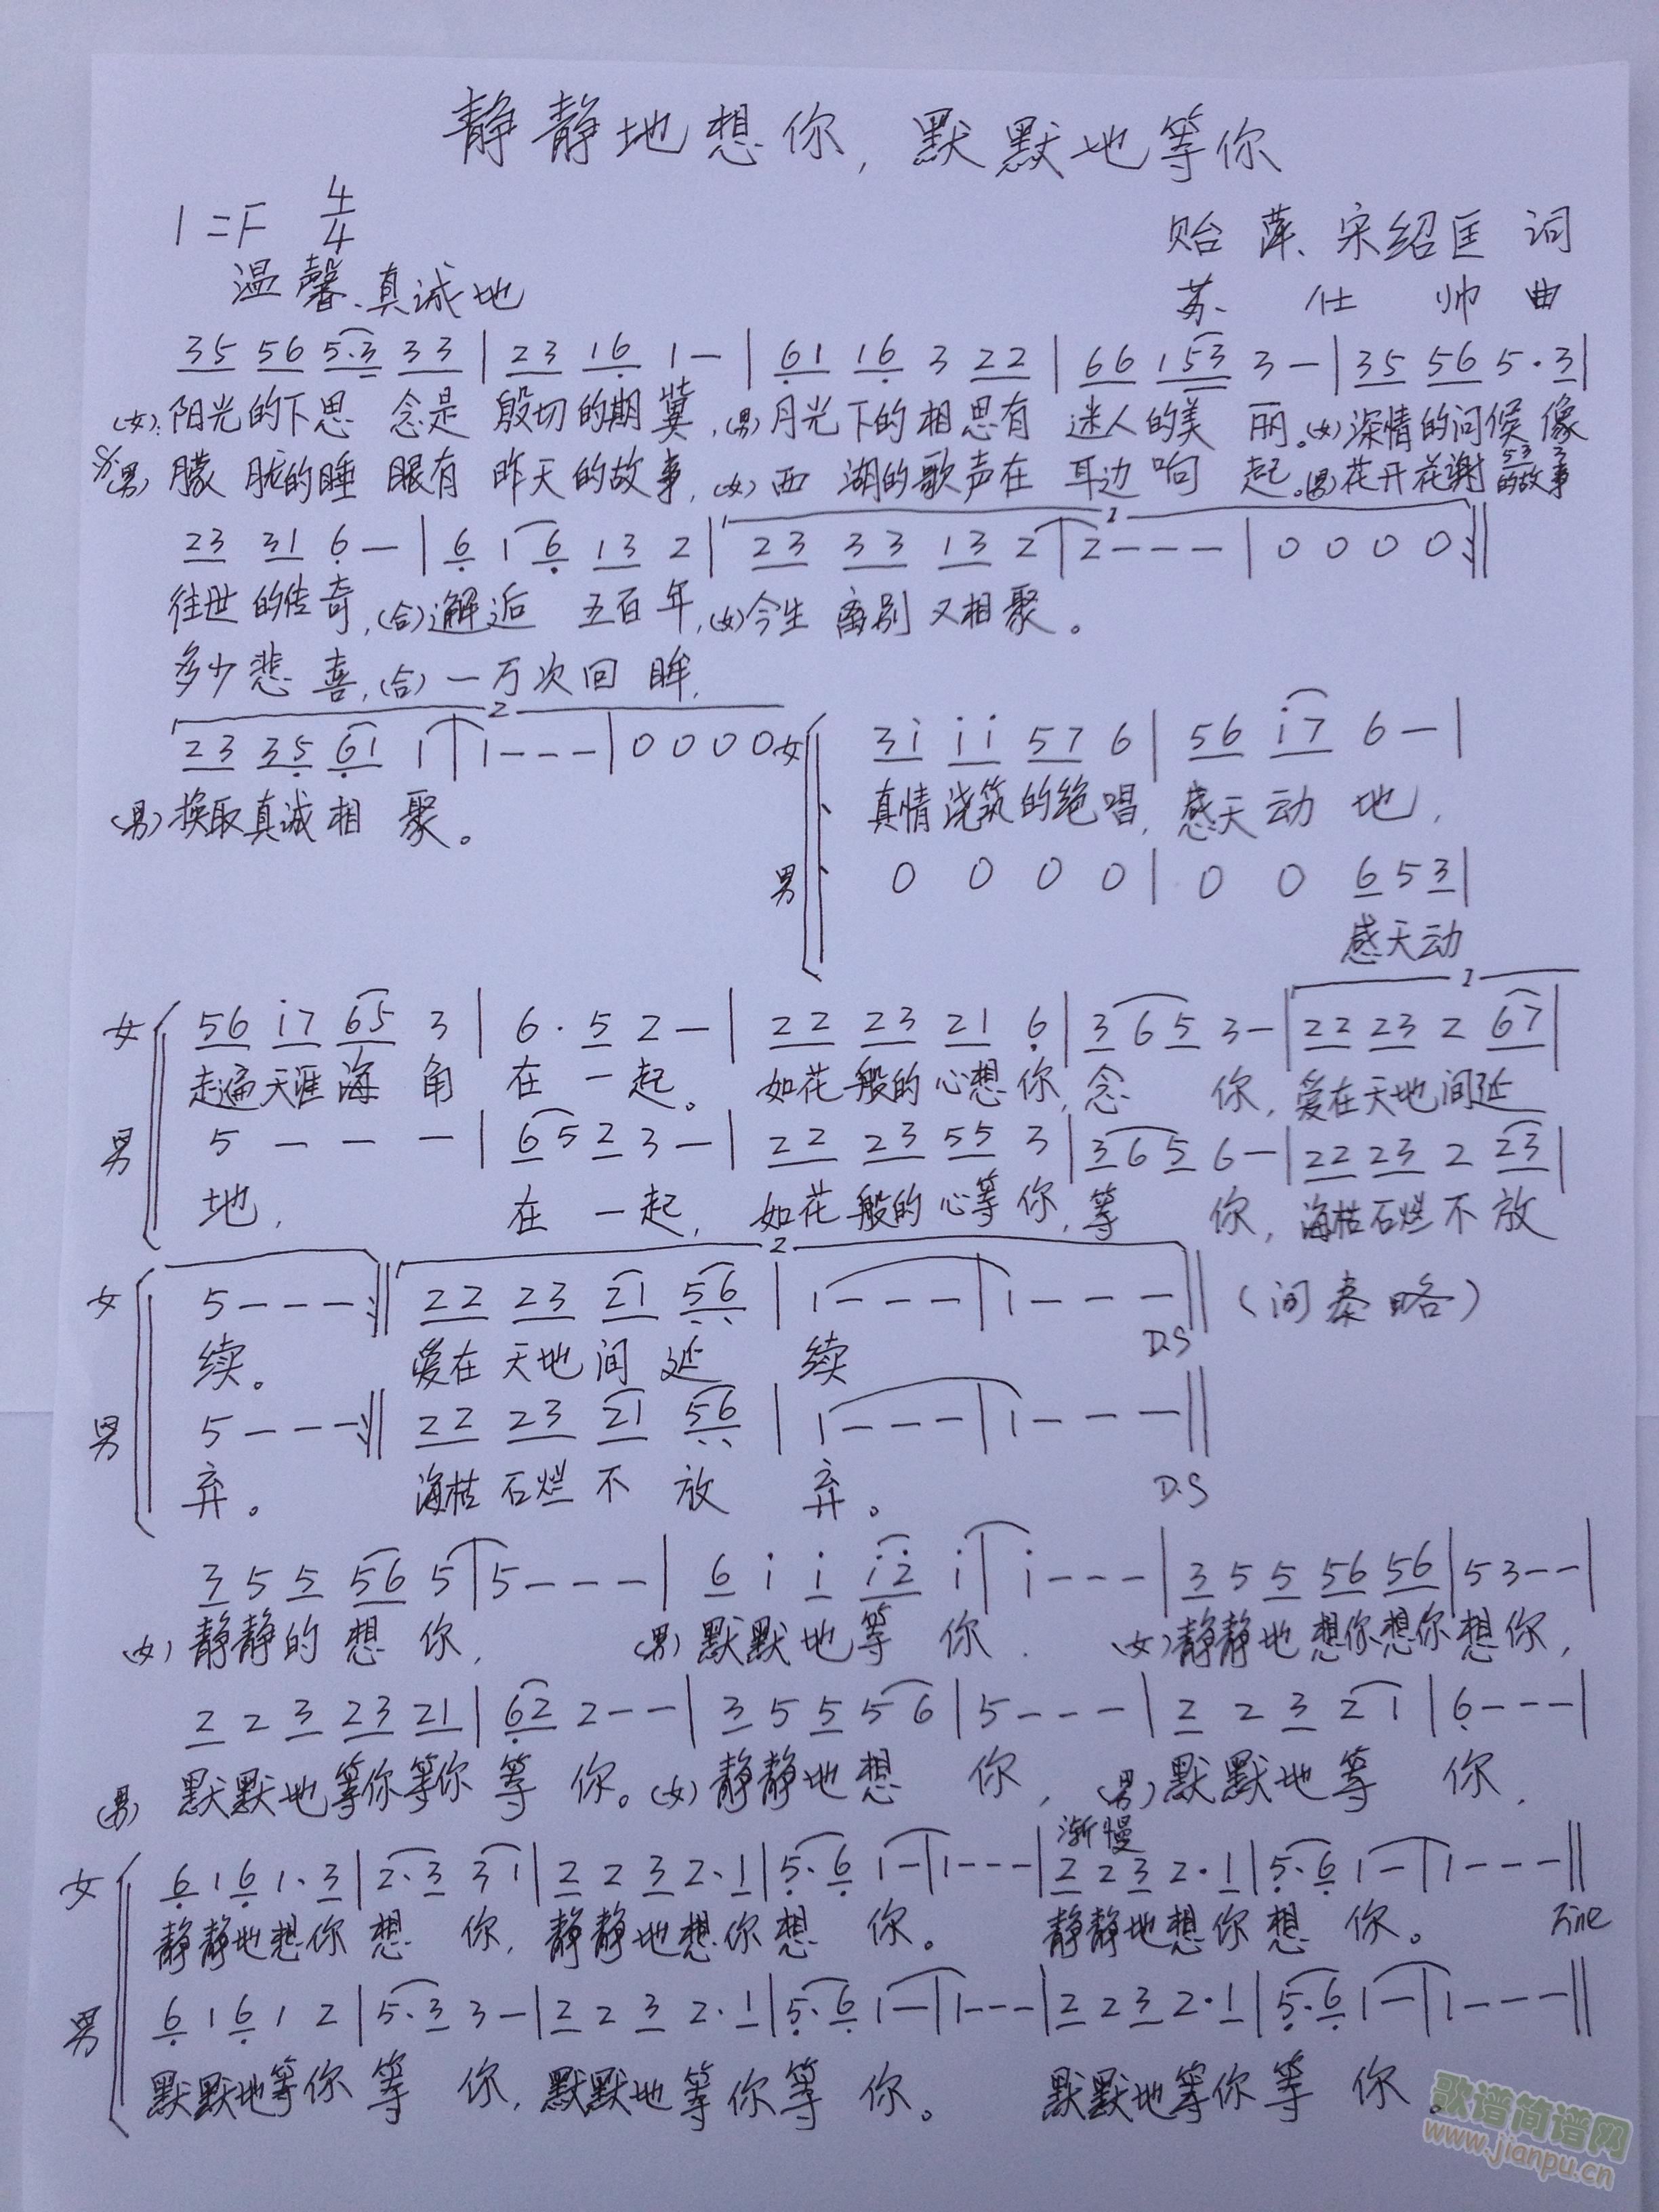 静静地想你,默默地等你
1=F 4/4
贻萍、宋绍匡 词
温馨、真诚地
苏仕帅 曲
35 56 5·3 33 | 23 16 1 — | 61 16 3 22 | 66 153 3 — | 35 56 5·3 |
(女):阳光的下思 念是 殷切的期冀,(男)月光下的相思有 迷人的美 丽。(女)深情的问候 像
53 3
(男)朦胧的睡眼有 昨天的故事,(女)西湖的歌声在 耳边响起。(男)花开花谢的故事
1
23 31 6 — | 6 1 6 13 2 | 23 33 13 2 | 2 - - - | 0 0 0 0 :||
往世的传奇,(合)邂逅 五百年,(女)今生 离别 又相聚。
多少悲喜,(合)一万次回眸,
2
23 35 61 1 | 1 - - - | 0 0 0 0
女 3i ii 57 6 | 56 i7 6 — |
(男)换取真诚相 聚。
真情浇筑的绝唱,感天动 地,
男 0 0 0 0 | 0 0 6 5 3 |
感天动
1
女 56 i7 65 3 | 6·5 2 — | 22 23 21 6 | 3 6 5 3 — | 22 23 2 67 |
走遍天涯海 角 在 一 起。 如花般的心想你,念 你,爱在天地间延
男 5 — — — | 6 5 2 3 — | 22 23 55 3 | 3 6 5 6 — | 22 23 2 23 |
地, 在 一起, 如花般的心等你,等 你,海枯石烂不放
2
女 5 - - - :|| 22 23 21 56 | 1 - - - | 1 - - - || (间奏略)
D.S
续。 爱在天地间延 续
男 5 - - - :|| 22 23 21 56 | 1 - - - | 1 - - - ||
弃。 海枯石烂不 放 弃。 D.S
3 5 5 56 5 | 5 - - - | 6 i i i2 i | i - - - | 3 5 5 56 56 | 5 3 - - |
(女)静静的想 你, (男)默默地等 你. (女)静静地想你想你想你,
2 2 3 23 21 | 62 2 - - | 3 5 5 5 6 | 5 - - - | 2 2 3 2 1 | 6 - - - |
(男)默默地等你等你等 你。(女)静静地想 你,(男)默默地等 你,
渐慢
女 6 1 6 1·3 | 2·3 3 1 | 2 2 3 2·1 | 5·6 1 — | 1 - - - | 2 2 3 2·1 | 5·6 1 — | 1 - - - ||
静静地想你想 你,静静地想你想 你。 静静地想你想 你。 Fine
男 6 1 6 1 2 | 5·3 3 — | 2 2 3 2·1 | 5·6 1 — | 1 - - - | 2 2 3 2·1 | 5·6 1 — | 1 - - - ||
默默地等你等 你,默默地等你等 你。 默默地等你等 你。
歌谱简谱网
www.jianpu.cn